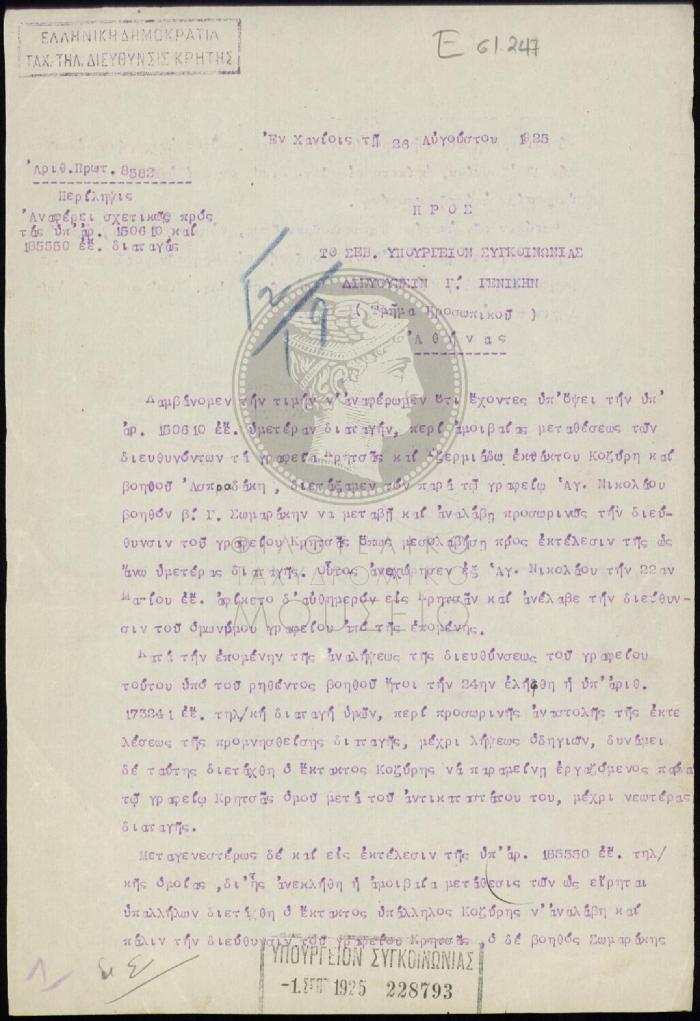 ΕΛΛΗΝΙΚΗ ΔΗΜΟΚΡΑΤΙΑ
ΤΑΧ. ΤΗΛ. ΔΙΕΥΘΥΝΣΙΣ ΚΡΗΤΗΣ
Ε 61.247
Ἐν Χανίοις τῇ 26 Αὐγούστου 1925
Ἀριθ.Πρωτ. 8582
Περίληψις
Ἀναφέρει σχετικῶς πρός
τάς ὑπ' ἀρ. 150610 καί
185550 ἐ.ἔ. διαταγάς
Π Ρ Ο Σ
ΤΟ ΣΕΒ. ΥΠΟΥΡΓΕΙΟΝ ΣΥΓΚΟΙΝΩΝΙΑΣ
ΔΙΕΥΘΥΝΣΙΝ Γ. ΓΕΝΙΚΗΝ
( Τμῆμα Προσωπικοῦ )
Ἀ θ ή ν α ς
12/9
Λαμβάνομεν τήν τιμήν ν' ἀναφέρωμεν ὅτι ἔχοντες ὑπ' ὄψει τήν ὑπ'
ἀρ. 150610 ἐ.ἔ. ὑμετέραν διαταγήν, περί ἀμοιβαίας μεταθέσεως τῶν
διευθυνόντων τά γραφεῖα Κρητσᾶς καί Τζερμιάδω ἐκτάκτου Κοζύρη καί
βοηθοῦ Ἀσπραδάκη, διετάξαμεν τόν παρά τῷ γραφείῳ Ἁγ. Νικολάου
βοηθόν β. Γ. Σωμαράκην νά μεταβῇ καί ἀναλάβῃ προσωρινῶς τήν διεύ-
θυνσιν τοῦ γραφείου Κρητσᾶς ὅπως μεσολαβήσῃ πρός ἐκτέλεσιν τῆς ὡς
ἄνω ὑμετέρας διαταγῆς. Οὗτος ἀνεχώρησεν ἐξ Ἁγ. Νικολάου τήν 22αν
Μαΐου ἐ.ἔ. ἀφίκετο δ' αὐθημερόν εἰς Κρητσᾶν καί ἀνέλαβε τήν διεύθυν-
σιν τοῦ ὁμωνύμου γραφείου ἀπό τῆς ἑπομένης.
Κατά τήν ἑπομένην τῆς ἀναλήψεως τῆς διευθύνσεως τοῦ γραφείου
τούτου ὑπό τοῦ ρηθέντος βοηθοῦ ἤτοι τήν 24ην ἐλήφθη ἡ ὑπ' ἀριθ.
173241 ἐ.ἔ. τηλ/κή διαταγή ὑμῶν, περί προσωρινῆς ἀναστολῆς τῆς ἐκτε
λέσεως τῆς προμνησθείσης διαταγῆς, μέχρι λήψεως ὁδηγιῶν, δυνάμει
δέ ταύτης διετάχθη ὁ ἔκτακτος Κοζύρης νά παραμείνῃ ἐργαζόμενος παρά
τῷ γραφείῳ Κρητσᾶς ὁμοῦ μετά τοῦ ἀντικαταστάτου του, μέχρι νεωτέρας
διαταγῆς.
Μεταγενεστέρως δέ καί εἰς ἐκτέλεσιν τῆς ὑπ' ἀρ. 185550 ἐ.ἔ. τηλ/
κῆς ὁμοίας, δι' ἧς ἀνεκλήθη ἡ ἀμοιβαία μετάθεσις τῶν ὡς εἴρηται
ὑπαλλήλων διετάχθη ὁ ἔκτακτος ὑπάλληλος Κοζύρης ν' ἀναλάβῃ καί
πάλιν τήν διεύθυνσιν τοῦ γραφείου Κρητσᾶς, ὁ δέ βοηθός Σωμαράκης
ΥΠΟΥΡΓΕΙΟΝ ΣΥΓΚΟΙΝΩΝΙΑΣ
-1. ΣΕΠ 1925 228793
ΦΙΛΟΤΕΛΙΚΟ
ΤΑΧΥΔΡΟΜΙΚΟ
ΜΟΥΣΕΙΟ